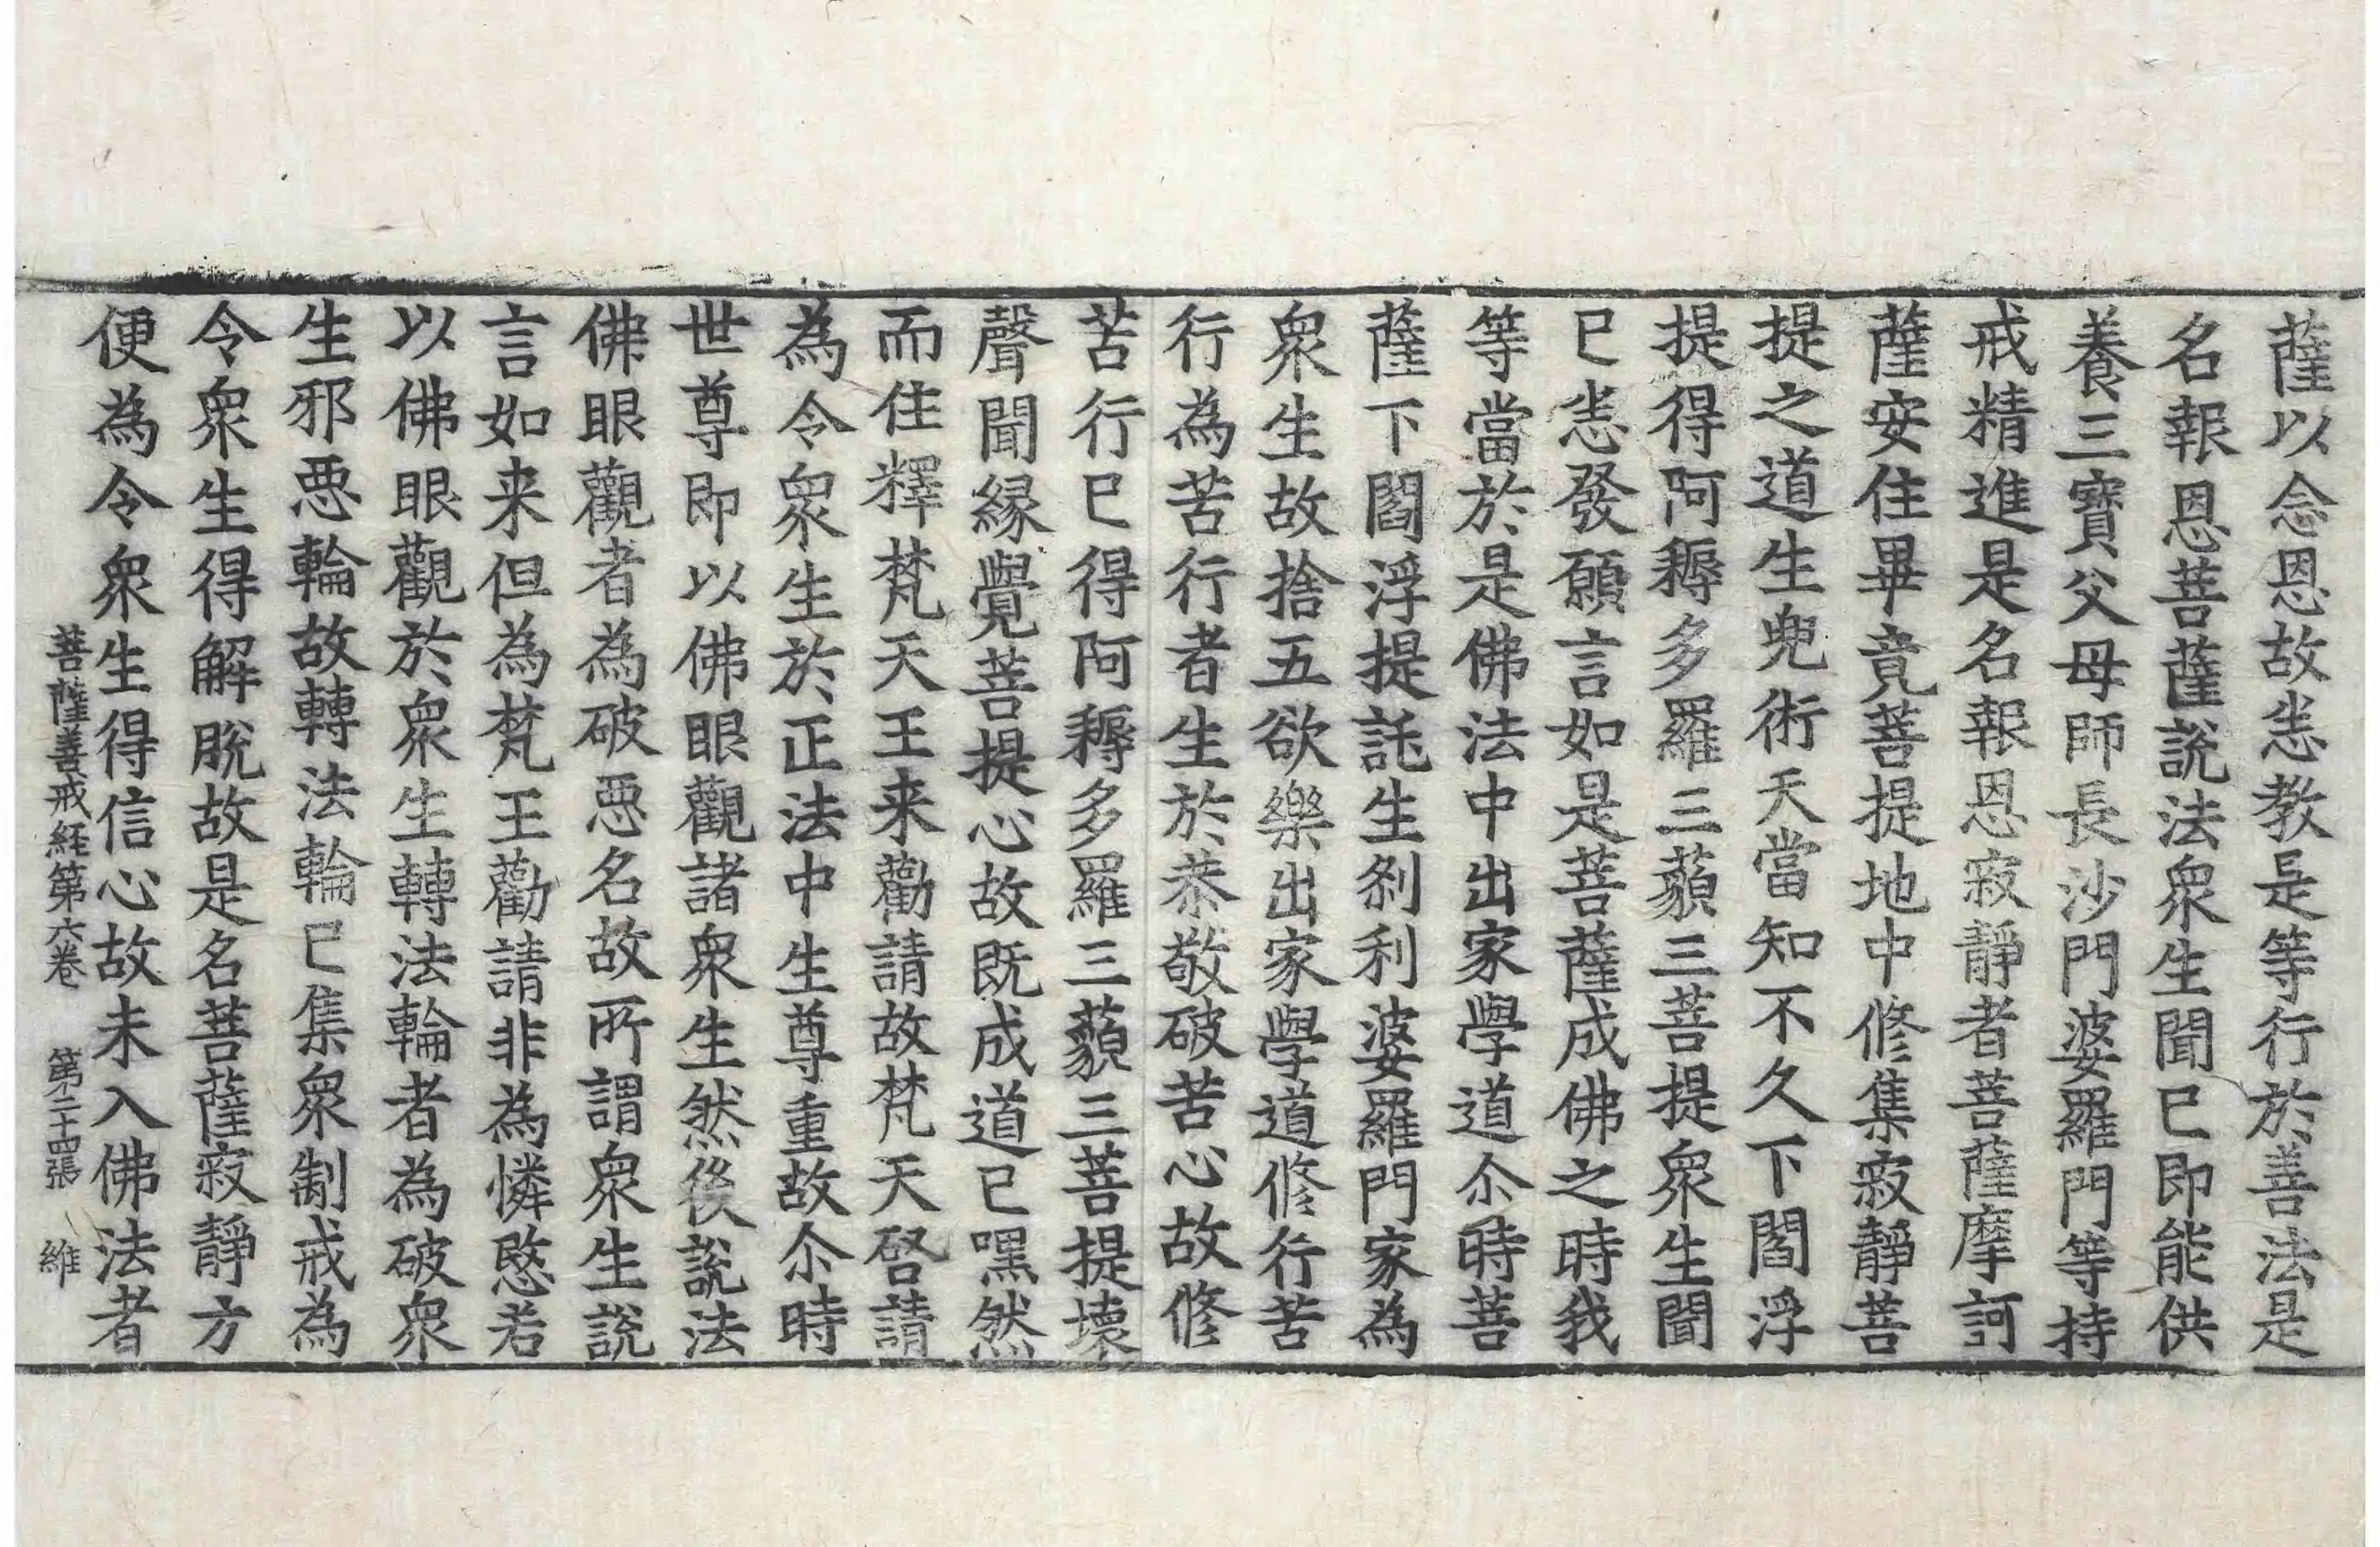 薩以念恩故恙教是等行於善法是
名報恩菩薩說法衆生聞已即能供
養三寶父母師長沙門婆羅門等持
戒精進是名報恩寂靜者菩薩摩訶
薩安住畢竟菩提地中修集寂靜菩
提之道生兜術天當知不久下閻浮
提得阿耨多羅三藐三菩提衆生聞
已恙發願言如是菩薩成佛之時我
等當於是佛法中出家學道尒時菩
薩下閻浮提託生刹利婆羅門家為
衆生故捨五欲樂出家學道修行苦
行為苦行者生於恭敬破苦心故修
苦行已得阿耨多羅三藐三菩提壞
聲聞緣覺菩提心故既成道已嘿然
而住釋梵天王来勸請故梵天啓請
為令衆生於正法中生尊重故尒時
世尊即以佛眼觀諸衆生然後說法
佛眼觀者為破惡名故所謂衆生說
言如来但為梵王勸請非為憐愍若
以佛眼觀於衆生轉法輪者為破衆
生邪惡輪故轉法輪已集衆制戒為
令衆生得解脫故是名菩薩寂靜方
便為令衆生得信心故未入佛法者
菩薩善戒経第六卷 第二十四張 維